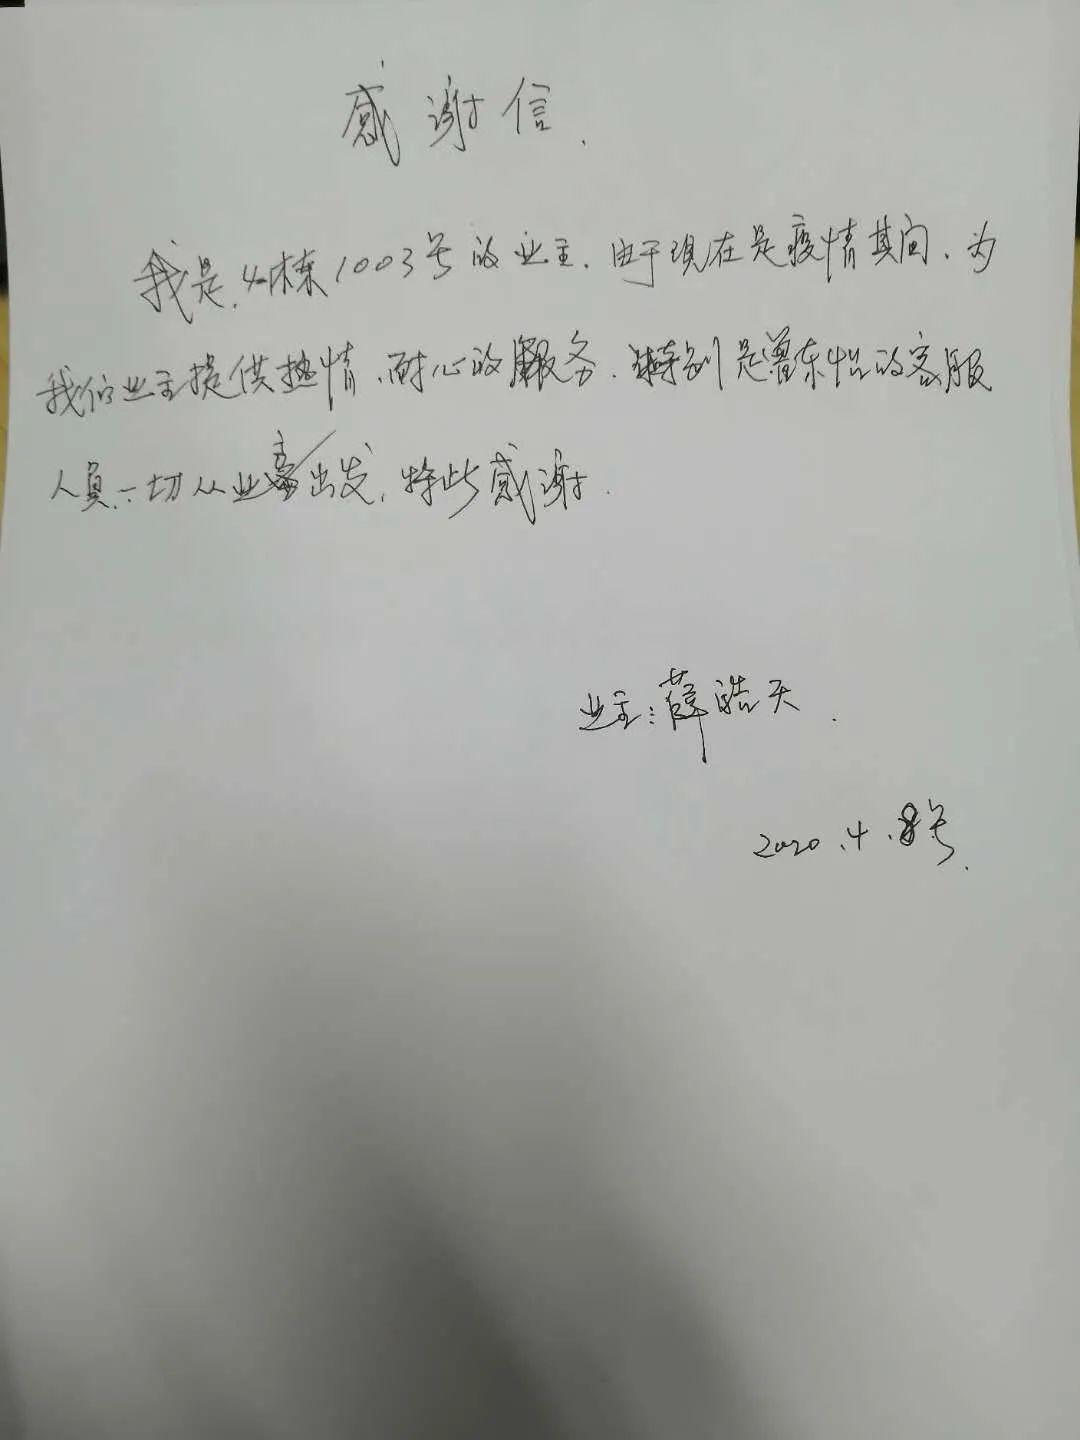 感谢信.
我是4栋1003号的业主.由于现在是疫情其间.为
我们业主提供热情.耐心的服务.特别是曾东怡的客服
人员.一切从业主出发.特此感谢.
业主:薛皓天.
2020.4.8号.